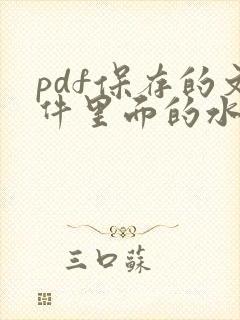 pdf保存的文
件里面的水
三口蘇